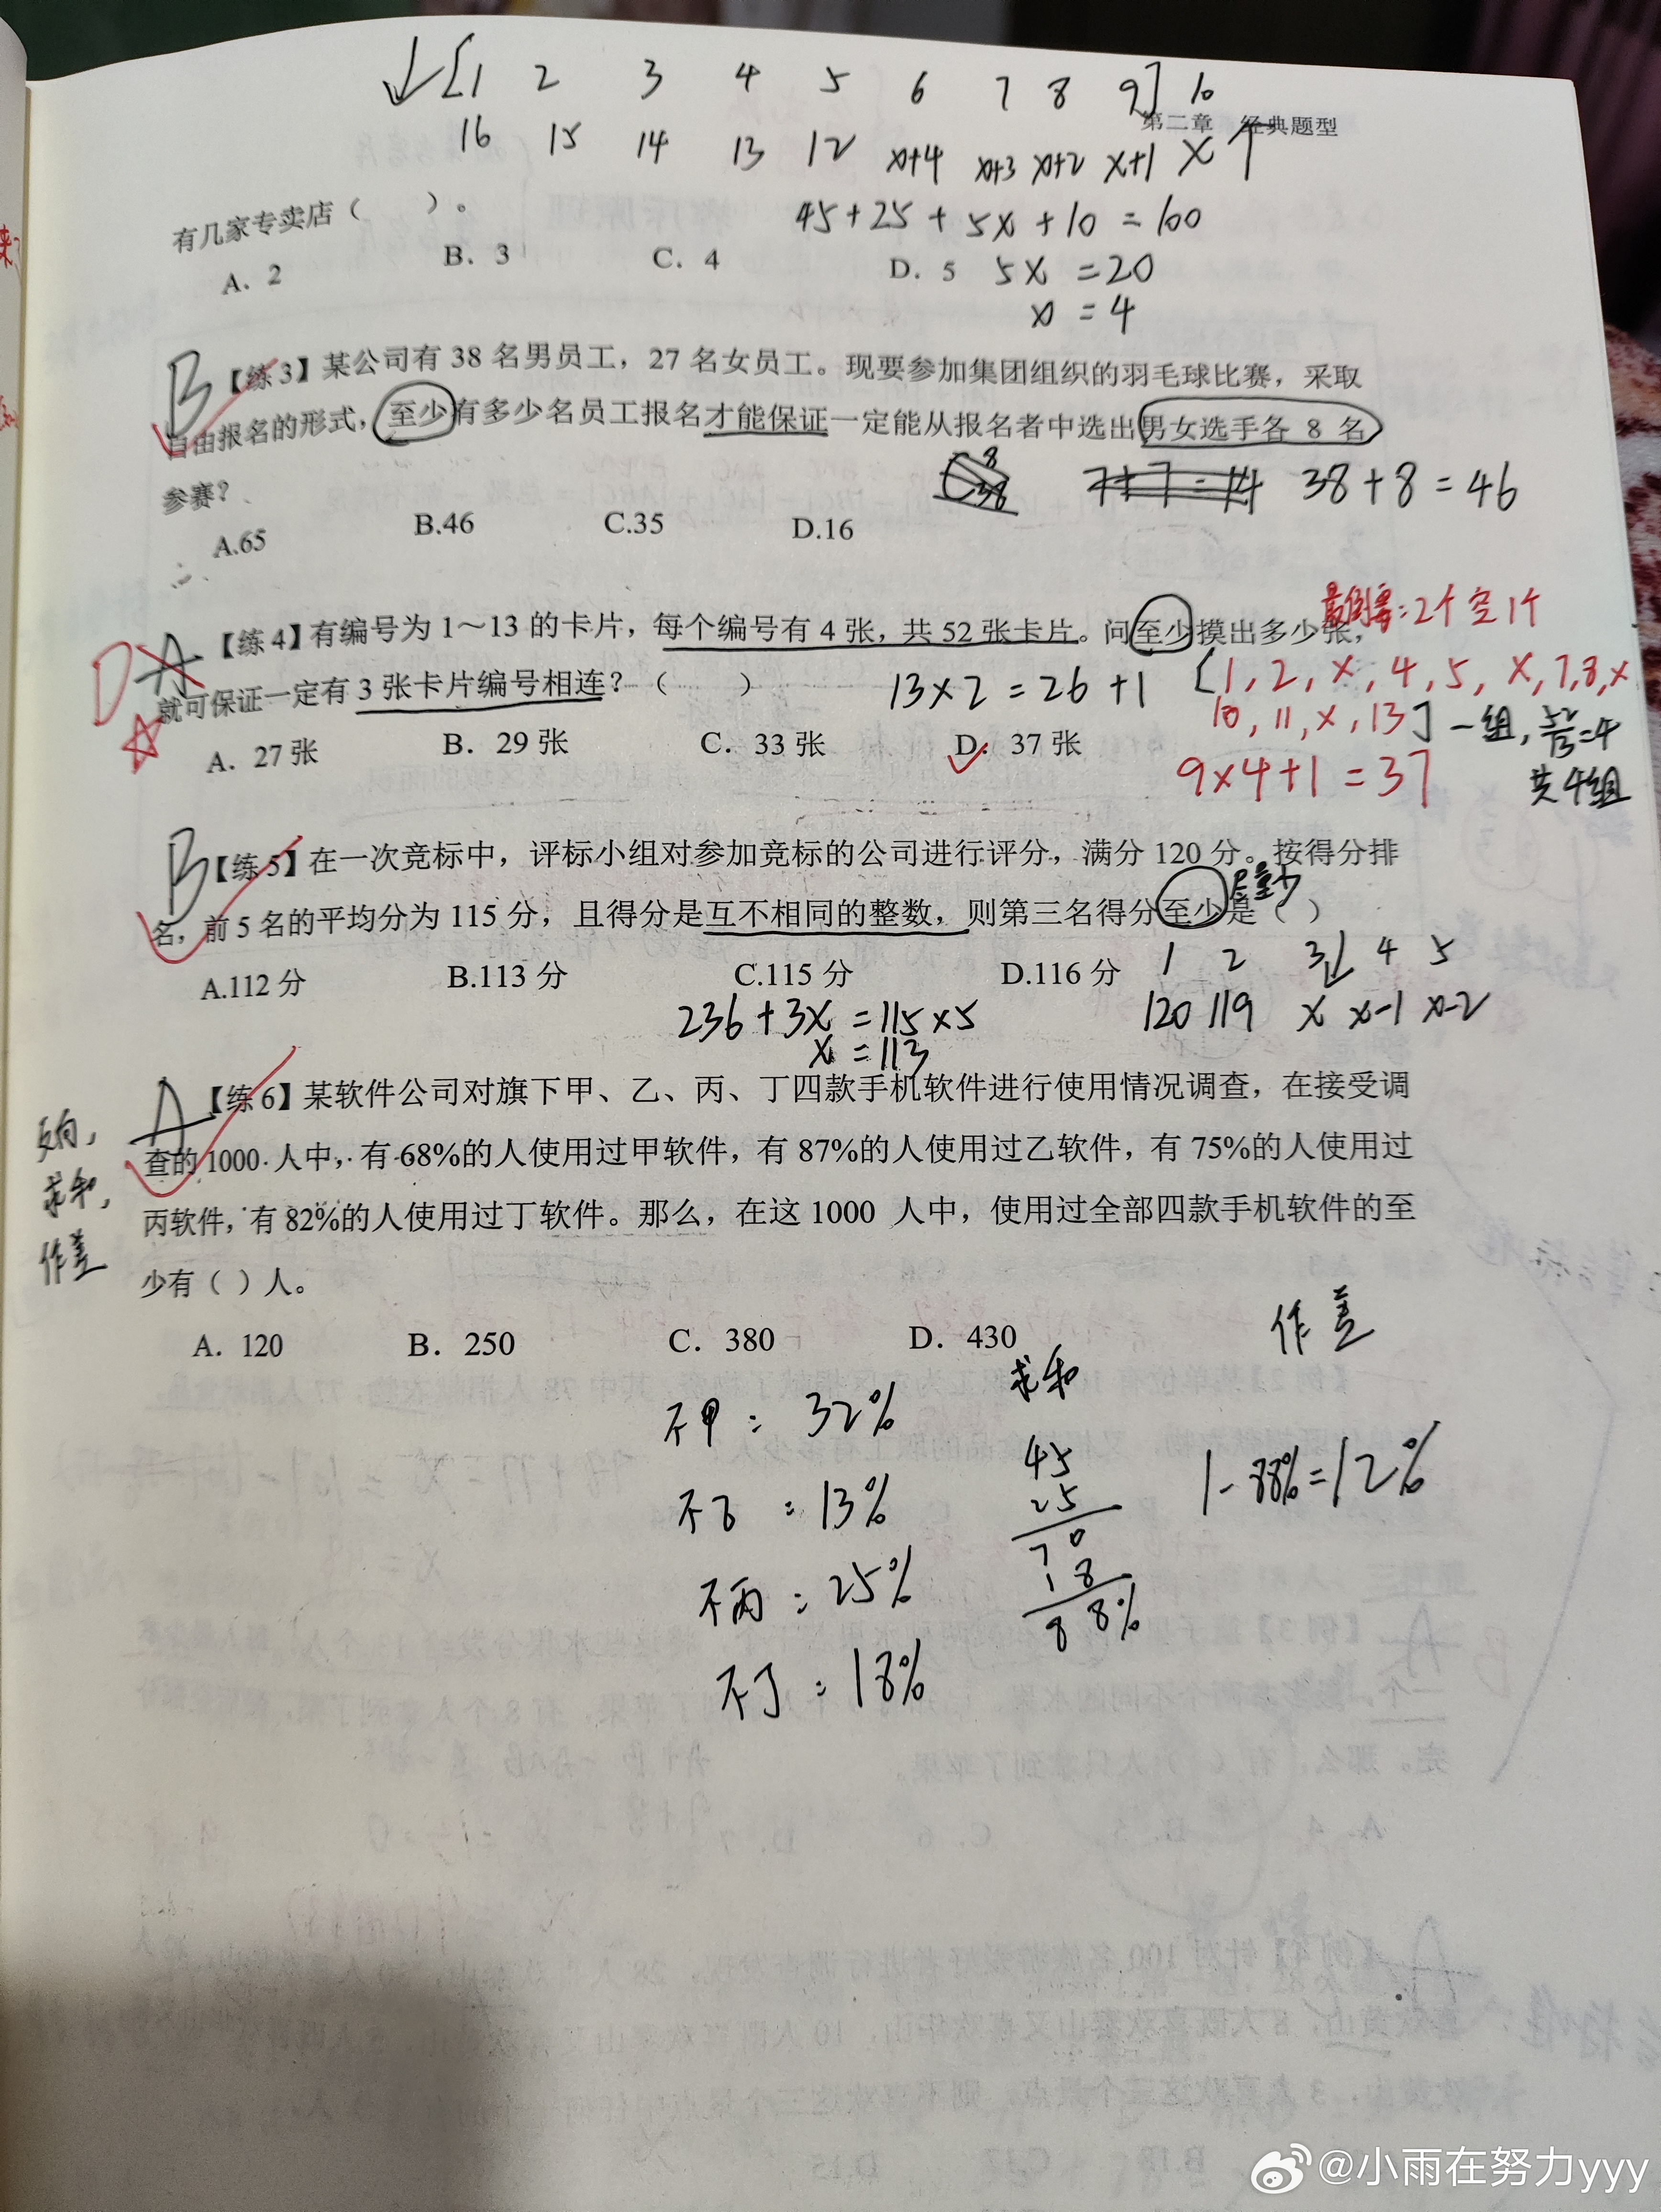 ↓[1 2 3 4 5 6 7 8 9] 10
第二章 经典题型
16 15 14 13 12 x+4 x+3 x+2 x+1 x↑
有几家专卖店（ ）。
45+25+5x+10=100
A. 2 B. 3 C. 4 D. 5
5x=20
x=4
B
【练3】某公司有 38 名男员工，27 名女员工。现要参加集团组织的羽毛球比赛，采取
自由报名的形式，至少有多少名员工报名才能保证一定能从报名者中选出男女选手各 8 名
参赛？
7+7=14 38+8=46
A.65 B.46 C.35 D.16
最倒霉：2个空1个
D A
【练4】有编号为 1～13 的卡片，每个编号有 4 张，共 52 张卡片。问至少摸出多少张，
就可保证一定有 3 张卡片编号相连？（ ）
13×2=26+1
[1,2,x,4,5,x,7,8,x
10,11,x,13]一组，52/13=4
共4组
A. 27 张 B. 29 张 C. 33 张 D. 37 张
9×4+1=37
B
【练5】在一次竞标中，评标小组对参加竞标的公司进行评分，满分 120 分。按得分排
尽量少
名，前 5 名的平均分为 115 分，且得分是互不相同的整数，则第三名得分至少是（ ）
A.112 分 B.113 分 C.115 分 D.116 分
1 2 3↓ 4 5
120 119 x x-1 x-2
236+3x=115×5
x=113
A
【练6】某软件公司对旗下甲、乙、丙、丁四款手机软件进行使用情况调查，在接受调
查的 1000 人中，有 68%的人使用过甲软件，有 87%的人使用过乙软件，有 75%的人使用过
丙软件，有 82%的人使用过丁软件。那么，在这 1000 人中，使用过全部四款手机软件的至
少有（ ）人。
反向，
求和，
作差
A. 120 B. 250 C. 380 D. 430
求和
作差
不甲：32%
不乙：13%
不丙：25%
不丁：18%
45
25
70
18
88%
1-88%=12%
@小雨在努力yyy